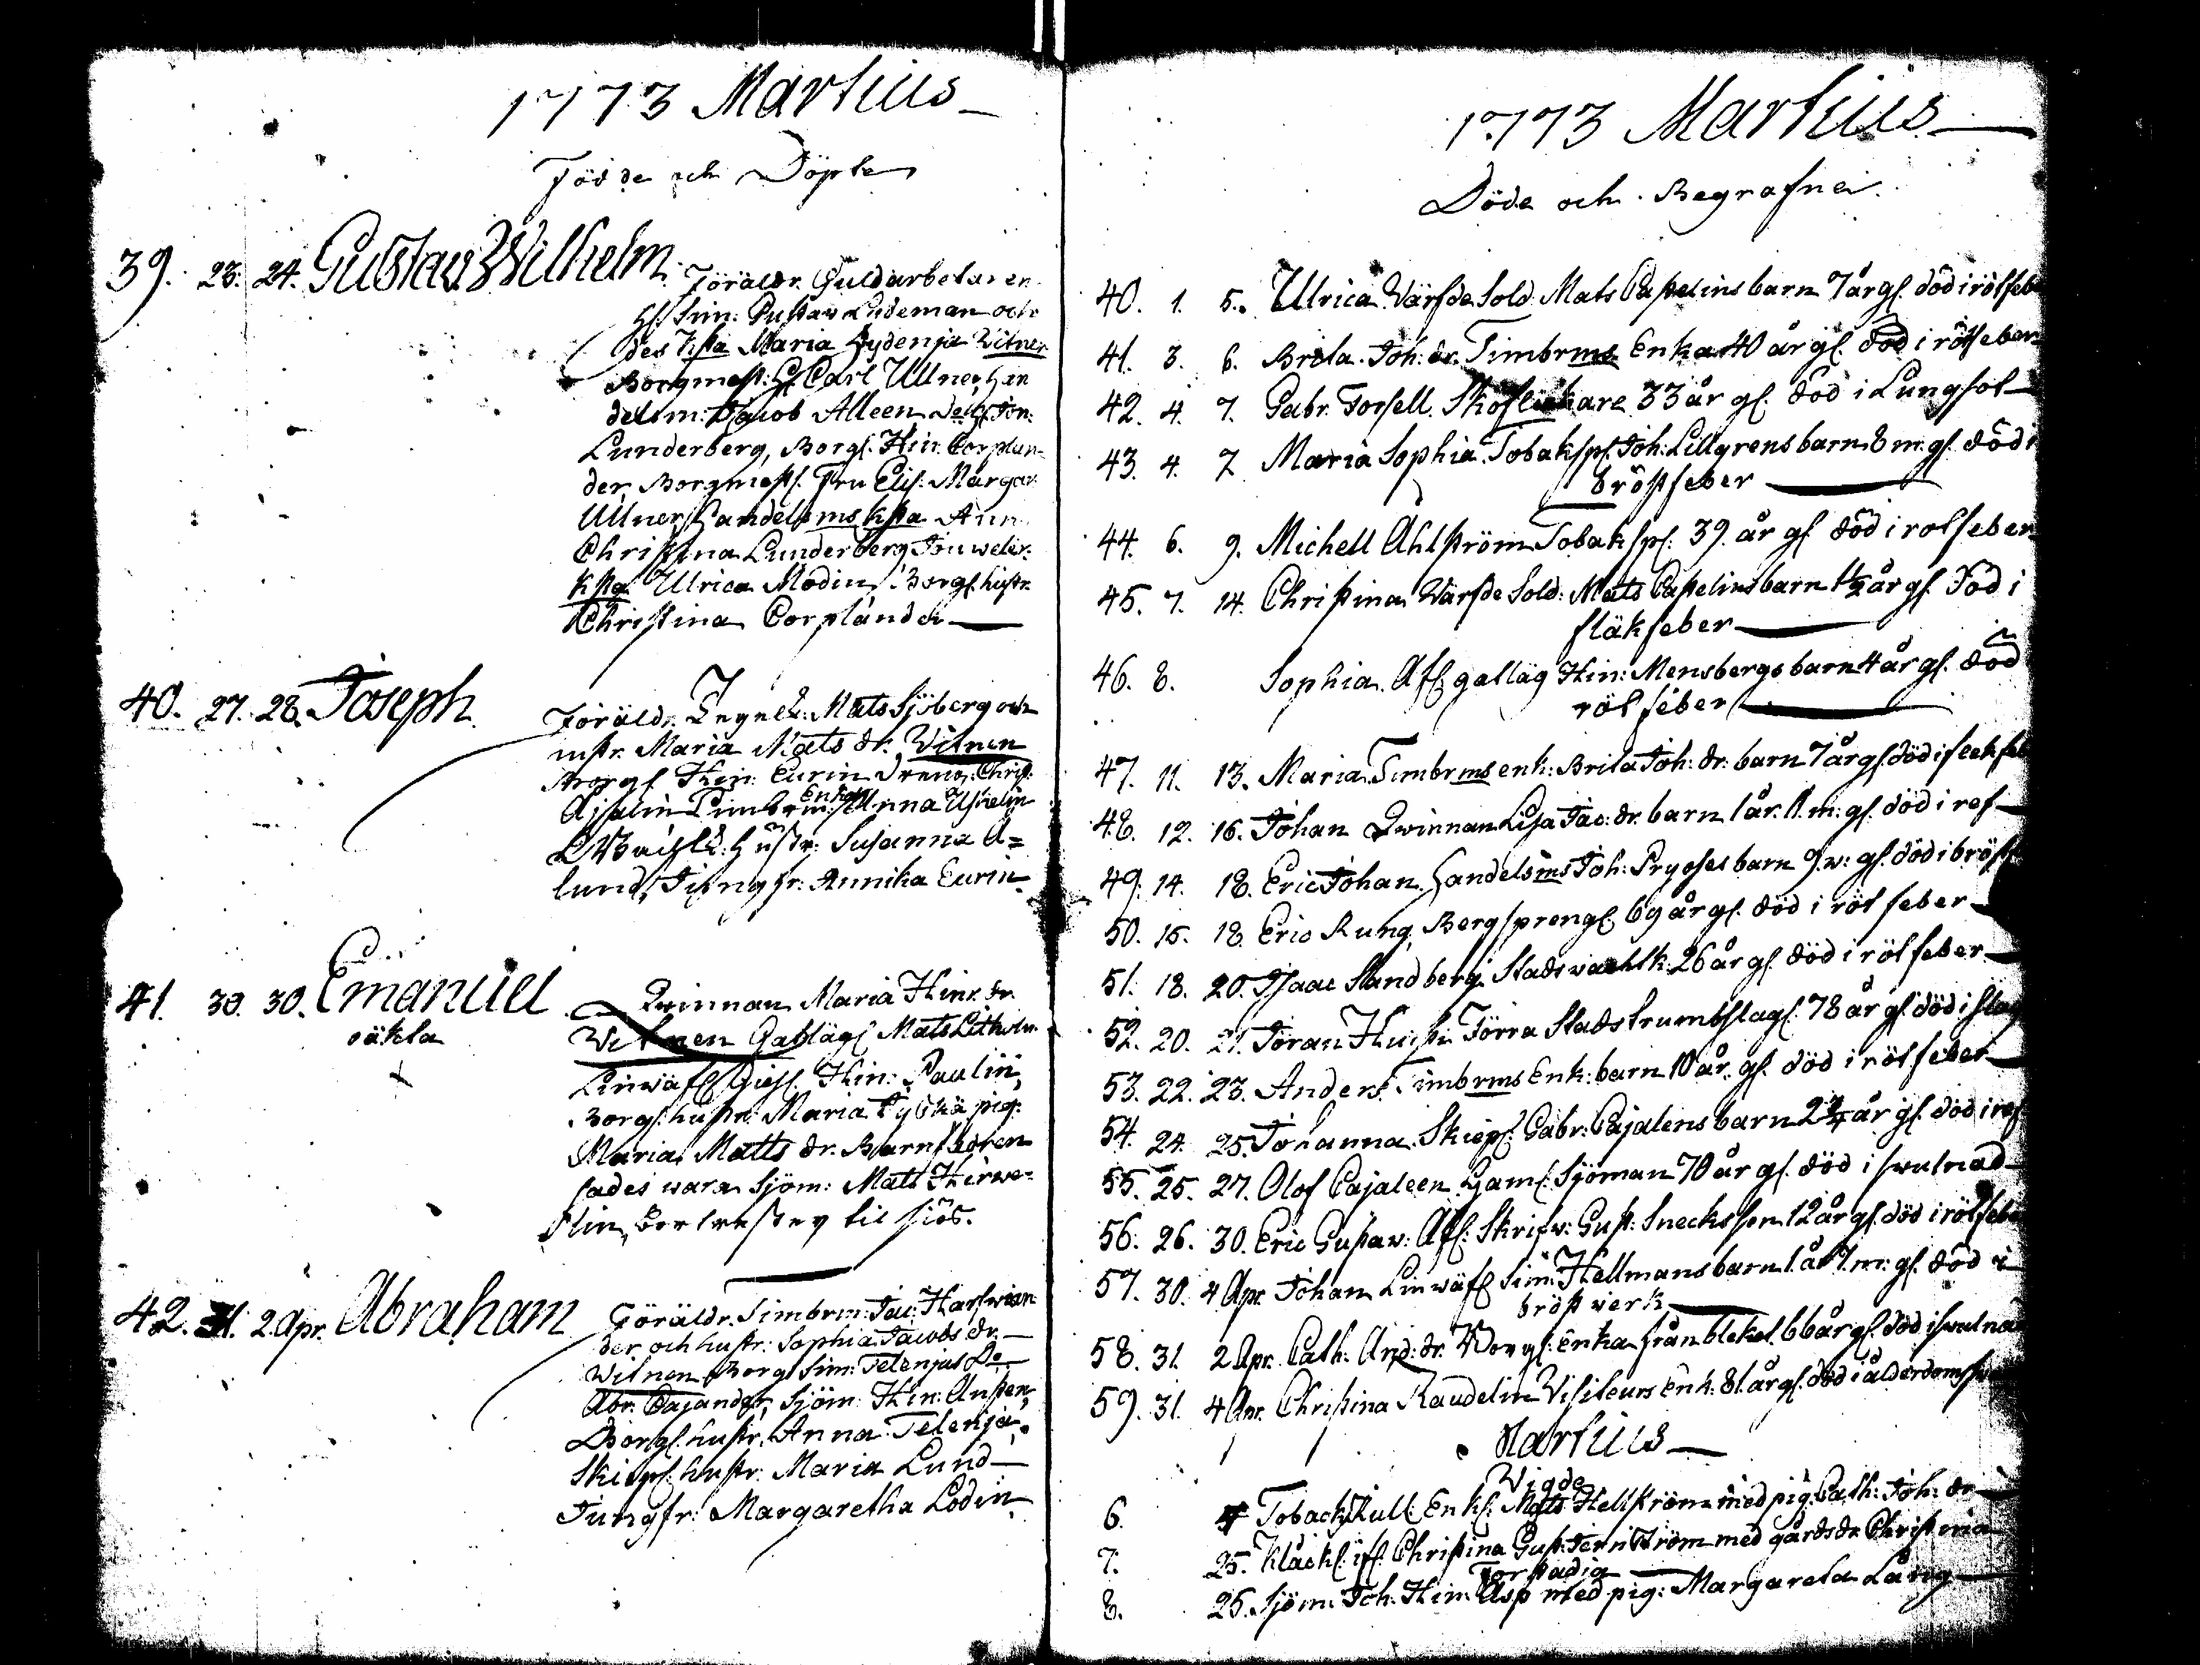 1773 Martius
Födde och Döpte
39. 23. 24. Gustav Wilhelm. Föräldr. Guldarbetaren
H: Sim: Gustav Lideman och
des hsta Maria Lydenja Witnen
Borgmest: H: Carl Ullner, Han
delsm: Jacob Alleen
Lunderberg, Borgs: Hin: Corplan
der, Borgmests. Fru Elis: Margar.
Ullner, Handelsms hsta Ann
Christina Lunderberg, Jouveler:
hsta Ulrica Modin, Borgs. hustr.
Christina Corplander
40. 27. 28. Joseph. Föräldr. Mats Sjöberg och
hustr. Maria Mats dr. Witnen
Borgs. Hin: Eurin Dreng: Christ:
Timberm: Enka Anna
hustr: Susanna A=
lund, Jungfr: Annika Eurin
41. 30. 30. Emanuel Qwinnan Maria Hinr. dr.
oäkta
Witnen Gatläg: Mats
Hin: Paulin,
Borgs. hustr: Maria pig:
Maria Matts dr. Barnfadren
sades wara Sjöm: Mats
til siös.
42. 31. 2. Apr. Abraham Föräldr. Timbrm: Jac:
der och hustr: Sophia Jacobs dr.
Witnen Borgs. Sim: Telenjus
Abr. Cajander, Sjöm: Hin:
Borgs. hustr. Anna Telenja,
Skieps. hustr: Maria Lund
Jungfr: Margaretha Lodin
1773 Martius
Döde och Begrafne
40. 1. 5. Ulrica Värfde Sold: Mats Capelins barn 7 år gl. död i rötfeb
41. 3. 6. Brita Joh: dr. Timbrms Enka 40 år gl. död i rötfeber
42. 4. 7. Gabr. Forsell. 33 år gl. död i Lungsot
43. 4. 7. Maria Sophia Tobaksp: Joh: Lillgrens barn 8 m: gl. död i
bröstfeber
44. 6. 9. Michell Ahlström Tobaksp: 39. år gl död i rötfeber
45. 7. 14. Christina Värfde Sold: Mats Capelins barn 1½ år gl. död i
fläkfeber
46. 8. Sophia. Hin: Mensbergs barn 4 år gl. död i
rötfeber
47. 11. 13. Maria Timbrms enk: Brita Joh: dr. barn 7 år gl. död i
48. 12. 16. Johan Qwinnan Lisa Jac: dr. barn 1 år. 11. m: gl. död i ref
49. 14. 18. Eric Johan Handelsms Joh: barn 9. w: gl. död i bröst
50. 15. 18. Eric Rung, Bergspreng: 69 år gl. död i rötfeber
51. 18. 20. Isaac Sandberg Stadswachtk: 26 år gl. död i rötfeber
52. 20. 21. Jöran Törra Stadstrumbslag: 78 år gl. död i slag
53. 22. 23. Anders Timbrms Enk: barn 10 år. gl. död i rötfeber
54. 24. 25. Johanna Skiep: Gabr: Cajalens barn 2¾ år gl. död i ref
55. 25. 27. Olof Cajaleen Gaml. Sjöman 70 år gl. död i swulnad
56. 26. 30. Eric Gustav: Skrifv: Gust: son 12 år gl. död i rötfeb
57. 30. 4 Apr. Johan Sim: Hellmans barn 1. år 7. m: gl. död i
bröstverk
58. 31. 2 Apr. Cath: And: dr. Borgs: Enka från 66 år gl. död i swulna
59. 31. 4 Apr. Christina Raudelin Visiteurs Enk: 81. år gl. död i ålderdoms
Martius
Wigde
6. 4 Tobacks Mats Hellström med pig: Cath: Joh: dr
7. 25. Christina Gust: med gårds dr Christina
8. 25. Sjöm: Joh: Hin: Asp med pig: Margareta Lång